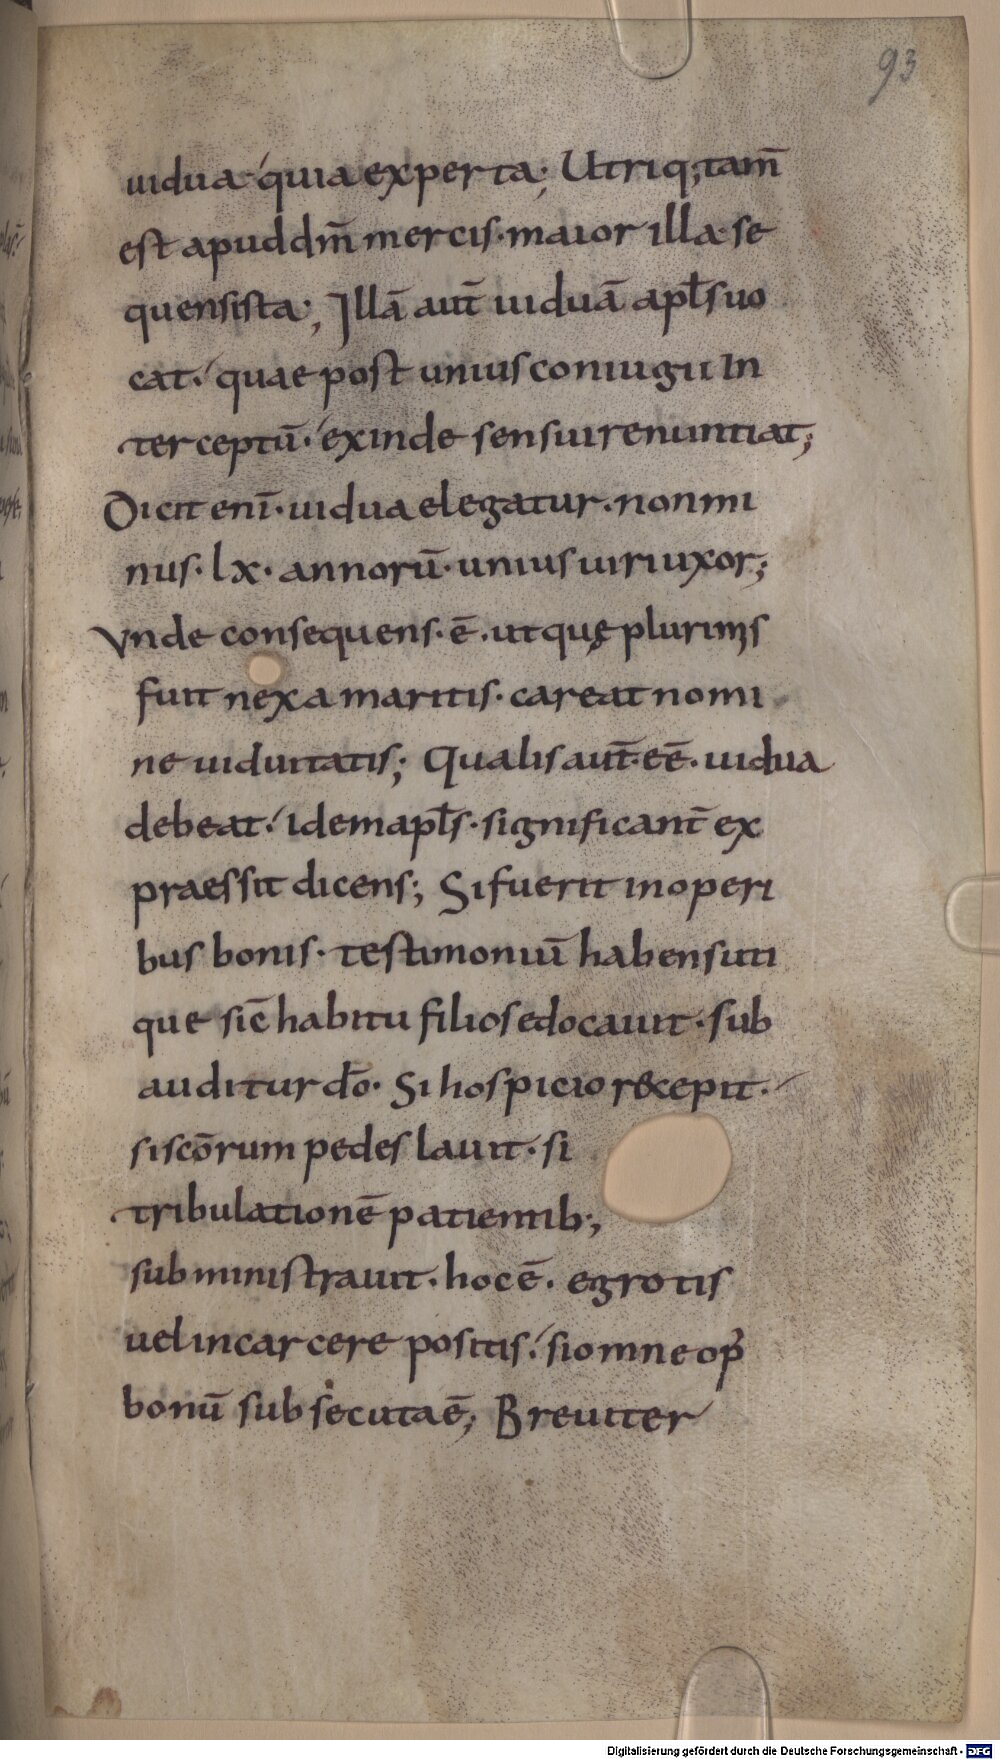 93
uidua quia experta; Utriq; tam̄
est apud dm̄ mercis· maior illa· se
quens ista; Illā aut̄ uiduā apl̄s uo
cat· quae post unius coniugii in
terceptū· exinde sensui renuntiat;
Dicit enī· uidua elegatur· non mi
nus· lx· annorū· unius uiri uxor;
Vnde consequens· ē· ut quę plurimis
fuit nexa maritis· careat nomi
ne uiduitatis; Qualis aut̄· eē· uidua
debeat· idem apl̄s· significant̄ ex
praessit dicens; Si fuerit in operi
bus bonis· testimoniū habens uti
que sic̄ habitu filios edocauit· sub
auditur do̅· Si hospicio recepit·
si sco̅rum pedes lauit· si
tribulationē patientib;
subministrauit· hoc ē· egrotis
uel in carcere positis· si omne op'
bonū subsecuta ē; Breuiter
Digitalisierung gefördert durch die Deutsche Forschungsgemeinschaft - DFG